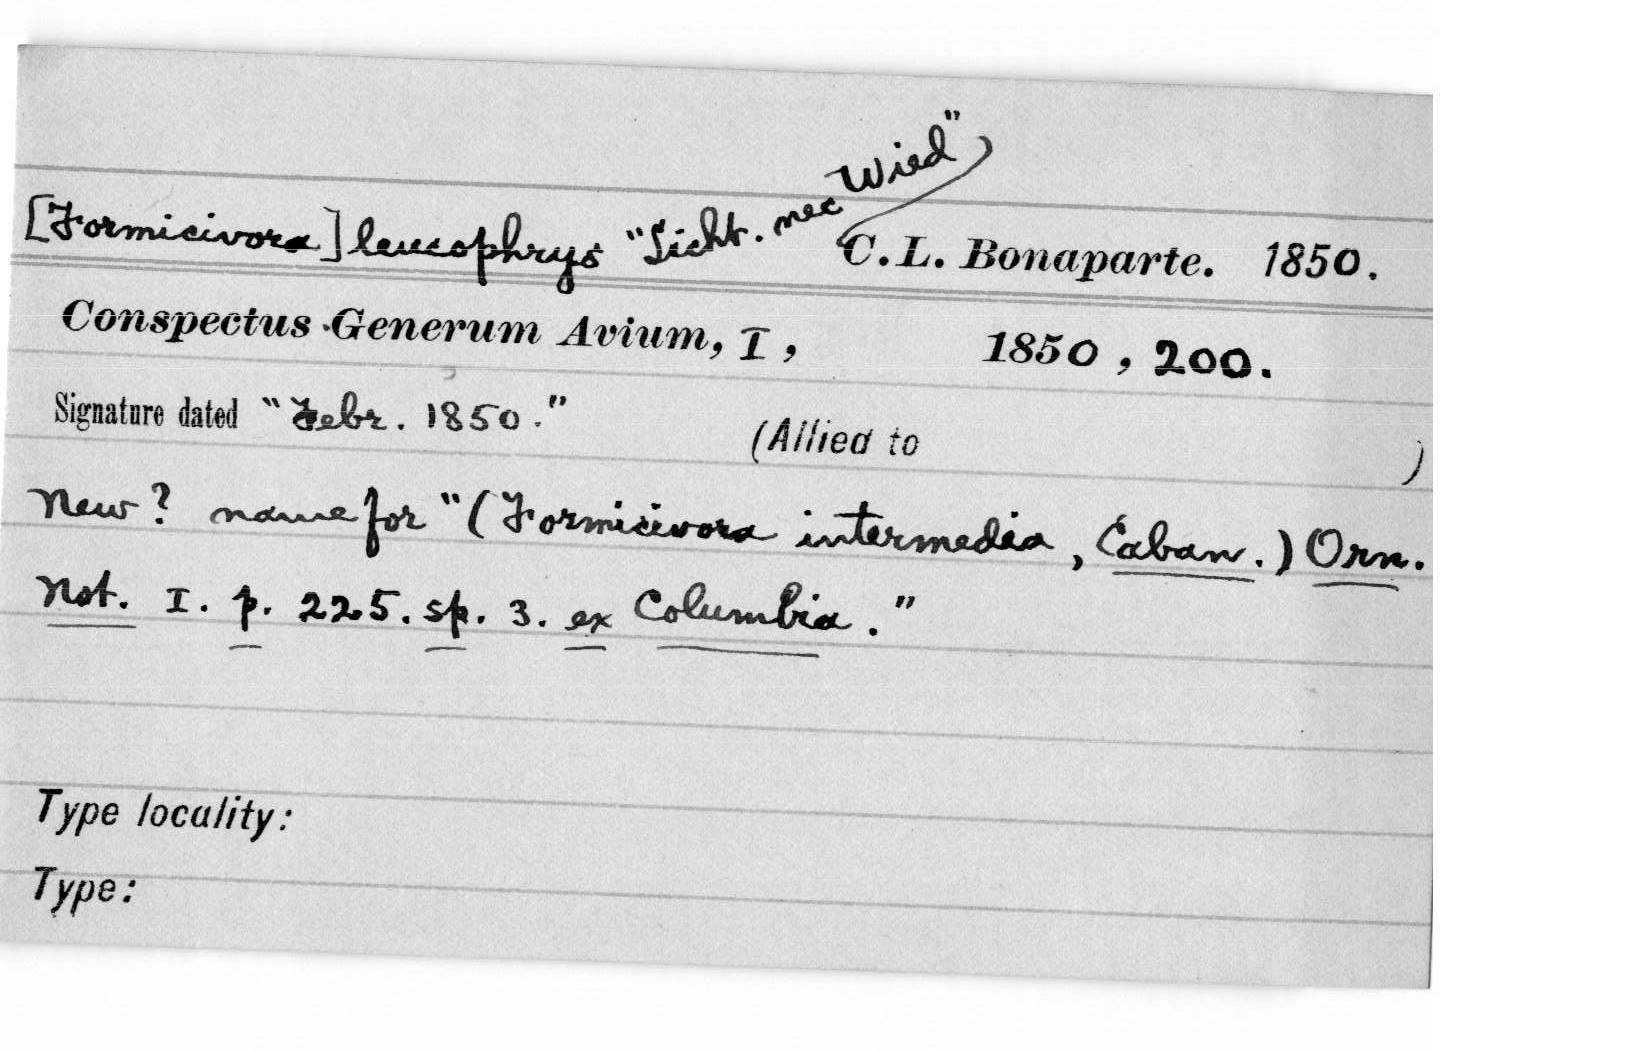 [Formicivora] leucophrys "Licht. nec Wied" C. L. Bonaparte. 1850.
Conspectus Generum Avium, I, 1850, 200.
Signature dated "Febr. 1850."
(Allied to )
New? name for "(Formicivora intermedia, Caban.) Orn.
Not. I. p. 225. sp. 3. ex Columbia."
Type locality:
Type: